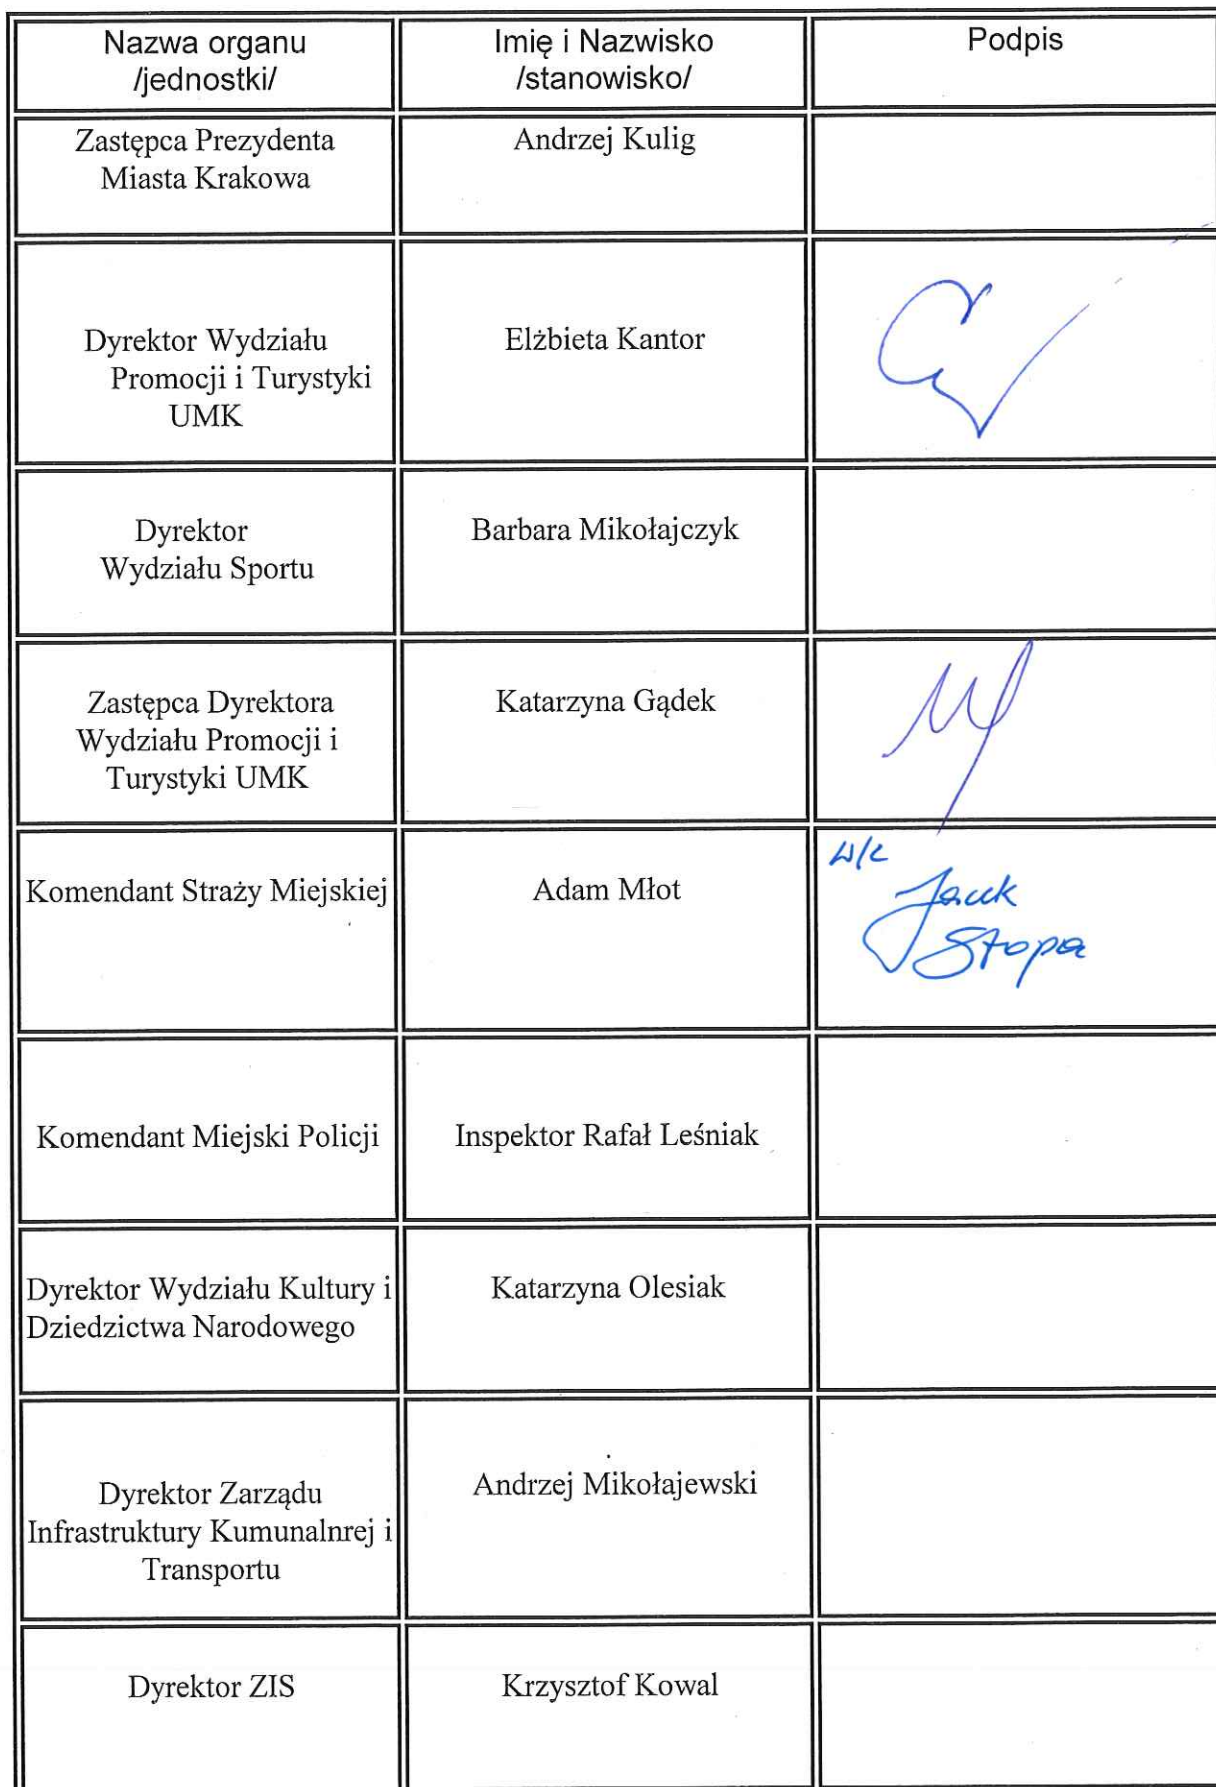 Nazwa organu
/jednostki/
Imię i Nazwisko
/stanowisko/
Podpis
Zastępca Prezydenta
Miasta Krakowa
Andrzej Kulig
Dyrektor Wydziału
Promocji i Turystyki
UMK
Elżbieta Kantor
Dyrektor
Wydziału Sportu
Barbara Mikołajczyk
Zastępca Dyrektora
Wydziału Promocji i
Turystyki UMK
Katarzyna Gądek
Komendant Straży Miejskiej
Adam Młot
Jacek
Stopa
Komendant Miejski Policji
Inspektor Rafał Leśniak
Dyrektor Wydziału Kultury i
Dziedzictwa Narodowego
Katarzyna Olesiak
Dyrektor Zarządu
Infrastruktury Kumunalnrej i
Transportu
Andrzej Mikołajewski
Dyrektor ZIS
Krzysztof Kowal